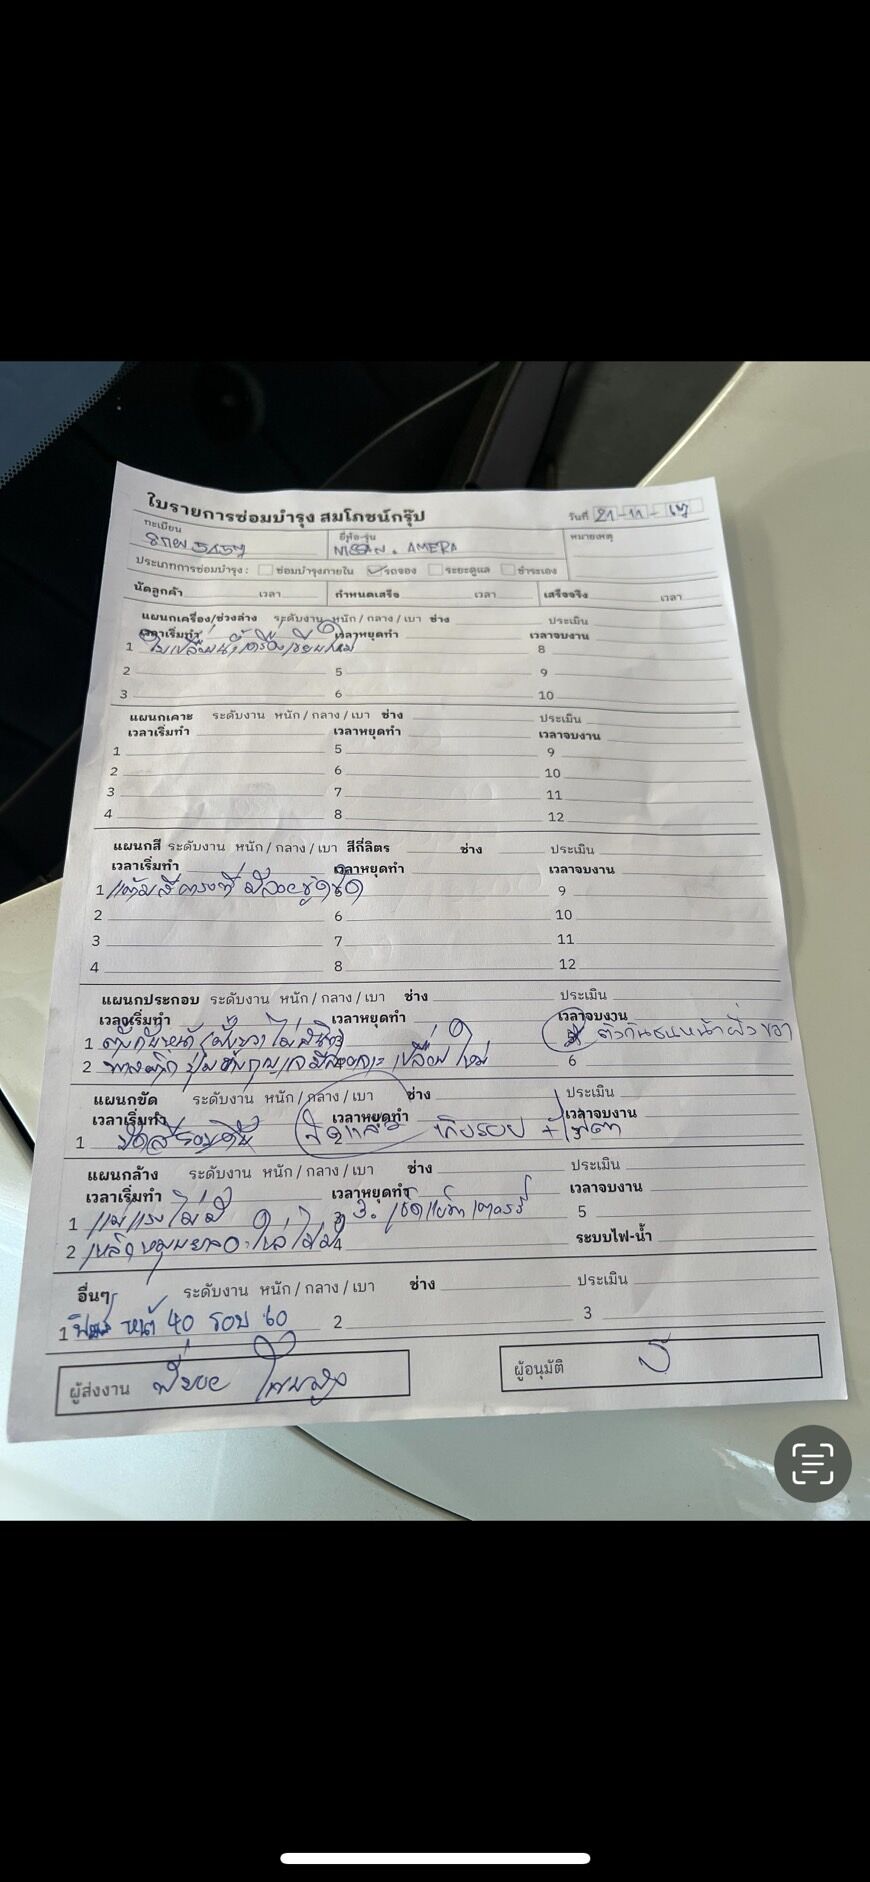 ใบรายการซ่อมบำรุง สมโภชน์กรุ๊ป
วันที่ 21-11-
ทะเบียน
ยี่ห้อ-รุ่น NISSAN. AMERA
หมายเหตุ
ประเภทการซ่อมบำรุง : ซ่อมบำรุงภายใน รถจอง ระยะดูแล ชำระเอง
นัดลูกค้า เวลา กำหนดเสร็จ เวลา เสร็จจริง เวลา
แผนกเครื่อง/ช่วงล่าง ระดับงาน หนัก / กลาง / เบา ช่าง ประเมิน
เวลาเริ่มทำ เวลาหยุดทำ เวลาจบงาน
1 ใบเปลี่ยนน้ำเครื่องเขียนใหม่ 8
2 5 9
3 6 10
แผนกเคาะ ระดับงาน หนัก / กลาง / เบา ช่าง ประเมิน
เวลาเริ่มทำ เวลาหยุดทำ เวลาจบงาน
1 5 9
2 6 10
3 7 11
4 8 12
แผนกสี ระดับงาน หนัก / กลาง / เบา สีกี่ลิตร ช่าง ประเมิน
เวลาเริ่มทำ เวลาหยุดทำ เวลาจบงาน
1 แต้มสีตรงที่มีรอยขูดขีด 9
2 6 10
3 7 11
4 8 12
แผนกประกอบ ระดับงาน หนัก / กลาง / เบา ช่าง ประเมิน
เวลาเริ่มทำ เวลาหยุดทำ เวลาจบงาน
1 ไม่สนิท ติวกันชนหน้าฝั่งขวา
2 เปลี่ยนใหม่ 6
แผนกขัด ระดับงาน หนัก / กลาง / เบา ช่าง ประเมิน
เวลาเริ่มทำ เวลาหยุดทำ เวลาจบงาน
1 เก็บรอย + ไฟตา
แผนกล้าง ระดับงาน หนัก / กลาง / เบา ช่าง ประเมิน
เวลาเริ่มทำ เวลาหยุดทำ เวลาจบงาน
1 แม่แรงไม่มี 3. เช็คแบตเตอรี่ 5
2 4 ระบบไฟ-น้ำ
อื่นๆ ระดับงาน หนัก / กลาง / เบา ช่าง ประเมิน
1 ฟิล์ม หน้า 40 รอบ 60 2 3
ผู้ส่งงาน
ผู้อนุมัติ